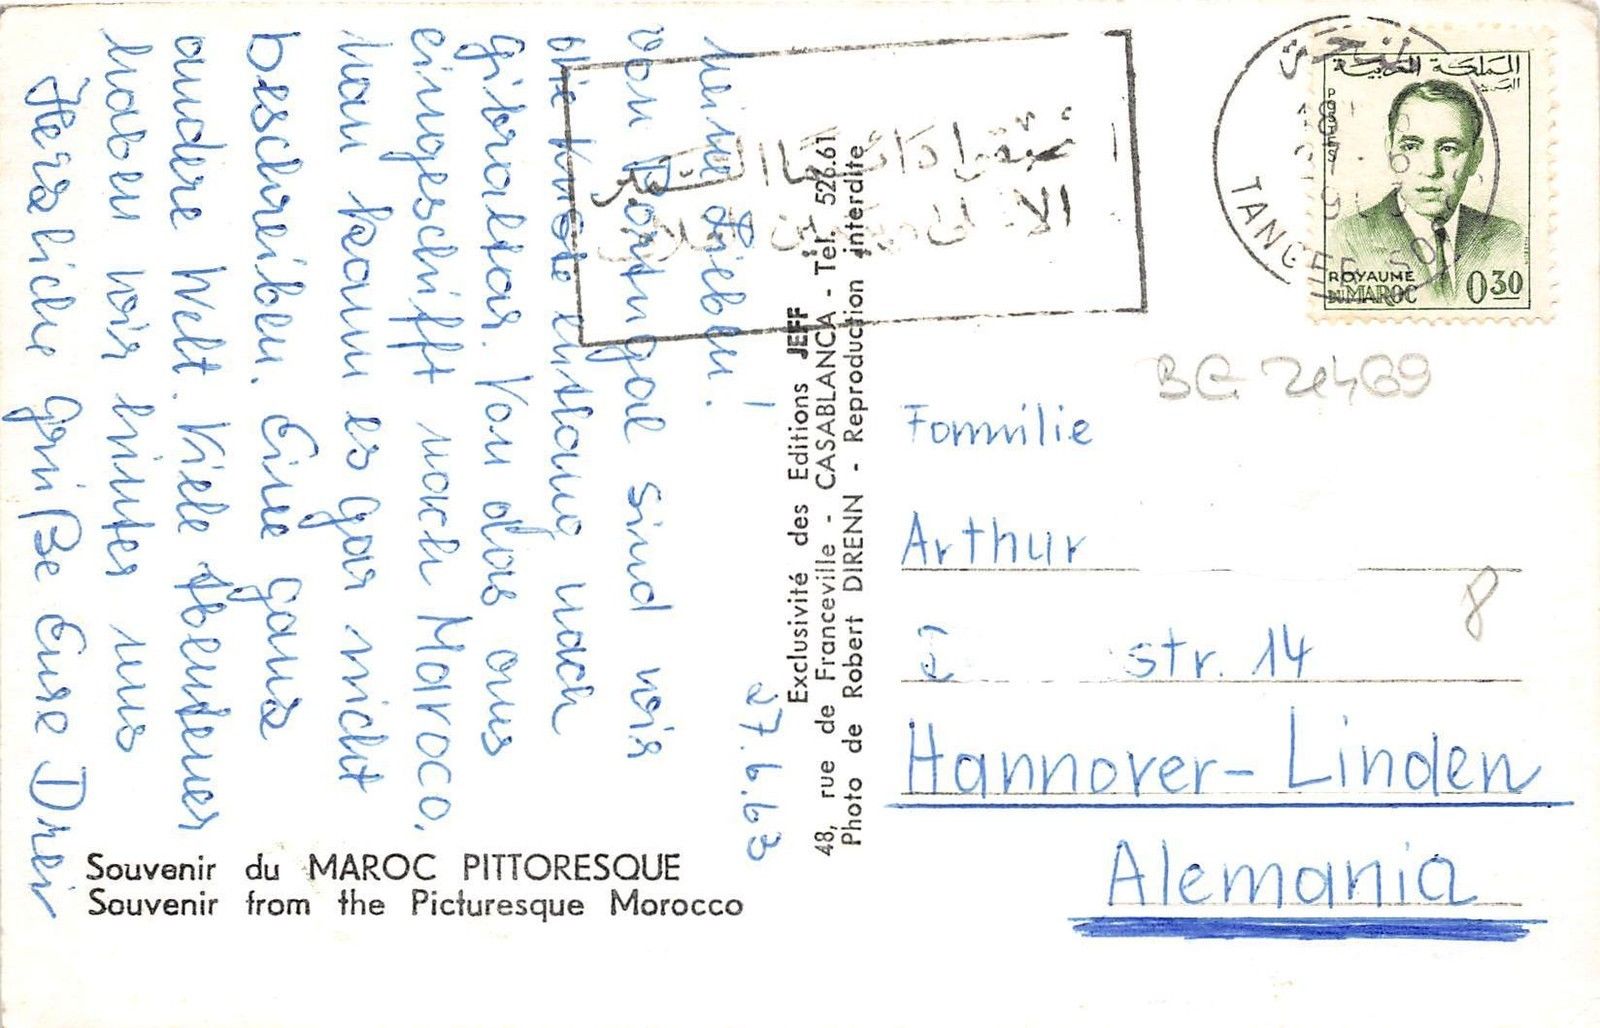 27.6.63
Meine Lieben!
von Portugal sind wir
die Küste entlang nach
Gibraltar. Von das aus
eingeschifft nach Maroco.
Man kann es gar nicht
beschreiben. Eine ganz
andere Welt. Viele Abenteuer
haben wir hinter uns
Herzliche Grüße Eure Drei
Souvenir du MAROC PITTORESQUE
Souvenir from the Picturesque Morocco
Exclusivité des Editions JEFF
48, rue de Franceville - CASABLANCA - Tél. 526.61
Photo de Robert DIRENN - Reproduction interdite
TANGER
المملكة المغربية
البريد
POSTES
ROYAUME
DU MAROC
0.30
BG 21469
Fammilie
Arthur
I str. 14
Hannover-Linden
Alemania
8